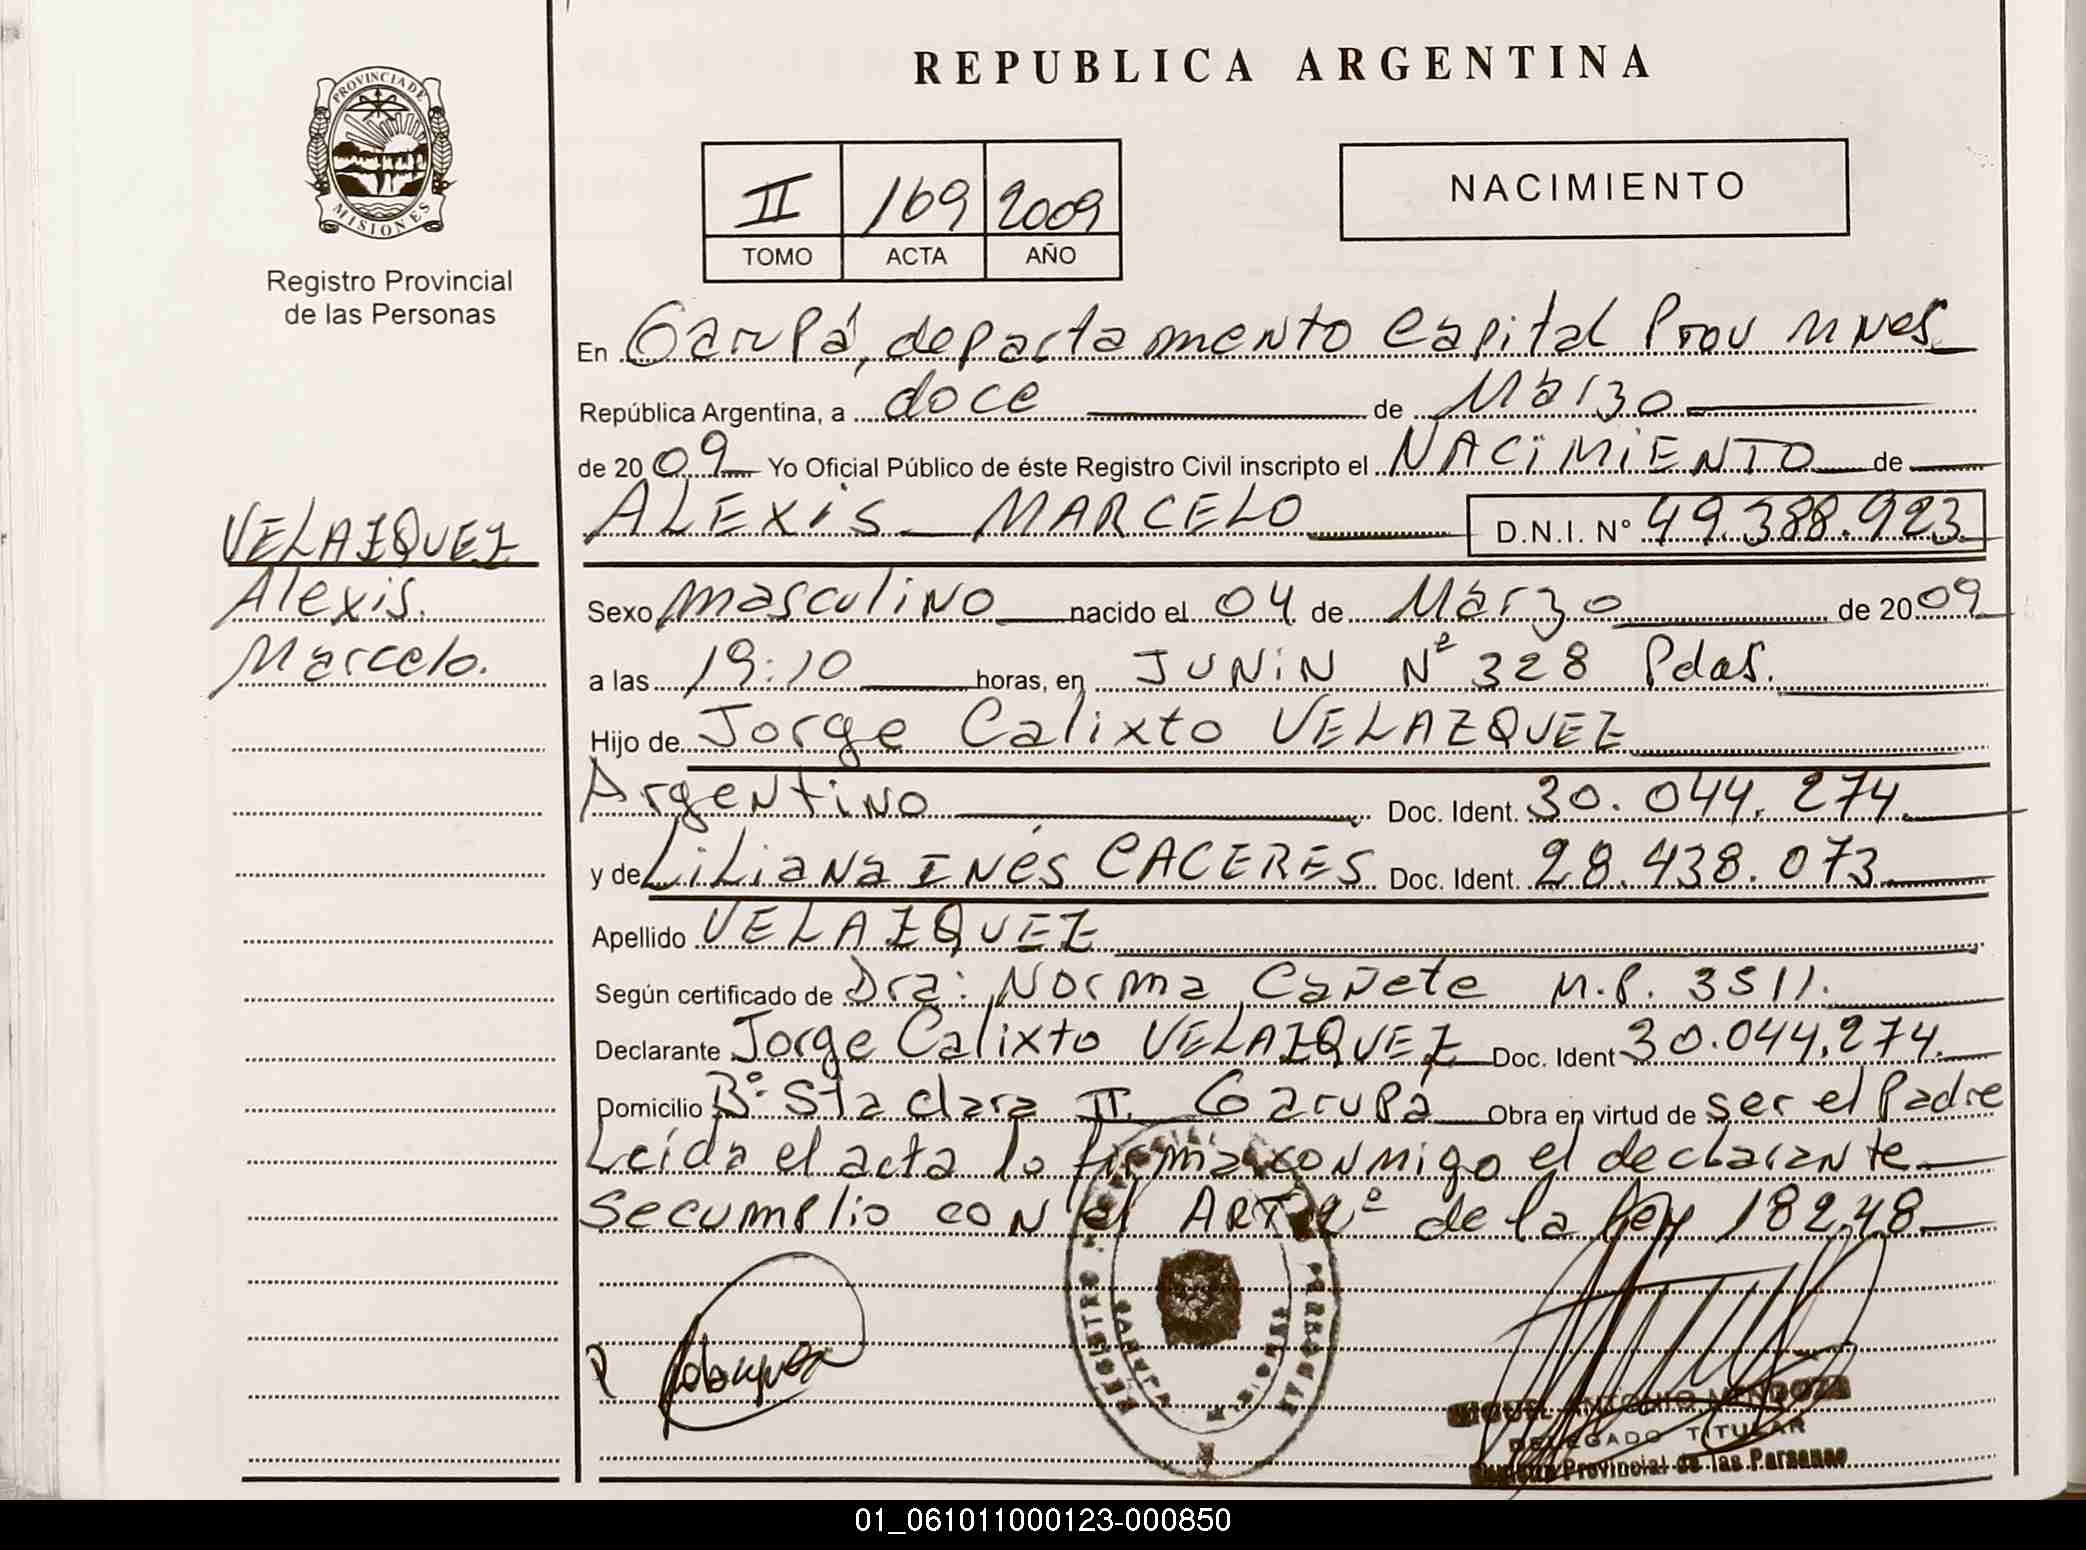 REPUBLICA ARGENTINA
PROVINCIA DE
MISIONES
Registro Provincial
de las Personas
II 169 2009
TOMO ACTA AÑO
NACIMIENTO
En Garupá, departamento Capital Prov Mnes
República Argentina, a doce de Marzo
de 2009 Yo Oficial Público de éste Registro Civil inscripto el NACIMIENTO de
ALEXIS MARCELO D.N.I. Nº 49.388.923
VELAZQUEZ
Alexis.
Marcelo.
Sexo masculino nacido el 04 de Marzo de 2009
a las 19:10 horas, en JUNIN Nº 328 Pdas.
Hijo de Jorge Calixto VELAZQUEZ
Argentino Doc. Ident. 30.044.274
y de Liliana INés CACERES Doc. Ident. 28.438.073
Apellido VELAZQUEZ
Según certificado de Dra: Norma Cañete M.P. 3511.
Declarante Jorge Calixto VELAZQUEZ Doc. Ident 30.044.274
Domicilio Bº Sta clara II Garupá Obra en virtud de ser el Padre
Leída el acta la firma conmigo el declarante
Se cumplio con el ART 2º de la ley 18248
Velazquez
REGISTRO PERSONAS
GARUPA
MIGUEL ANTONIO MENDOZA
DELEGADO TITULAR
Registro Provincial de las Personas
01_061011000123-000850